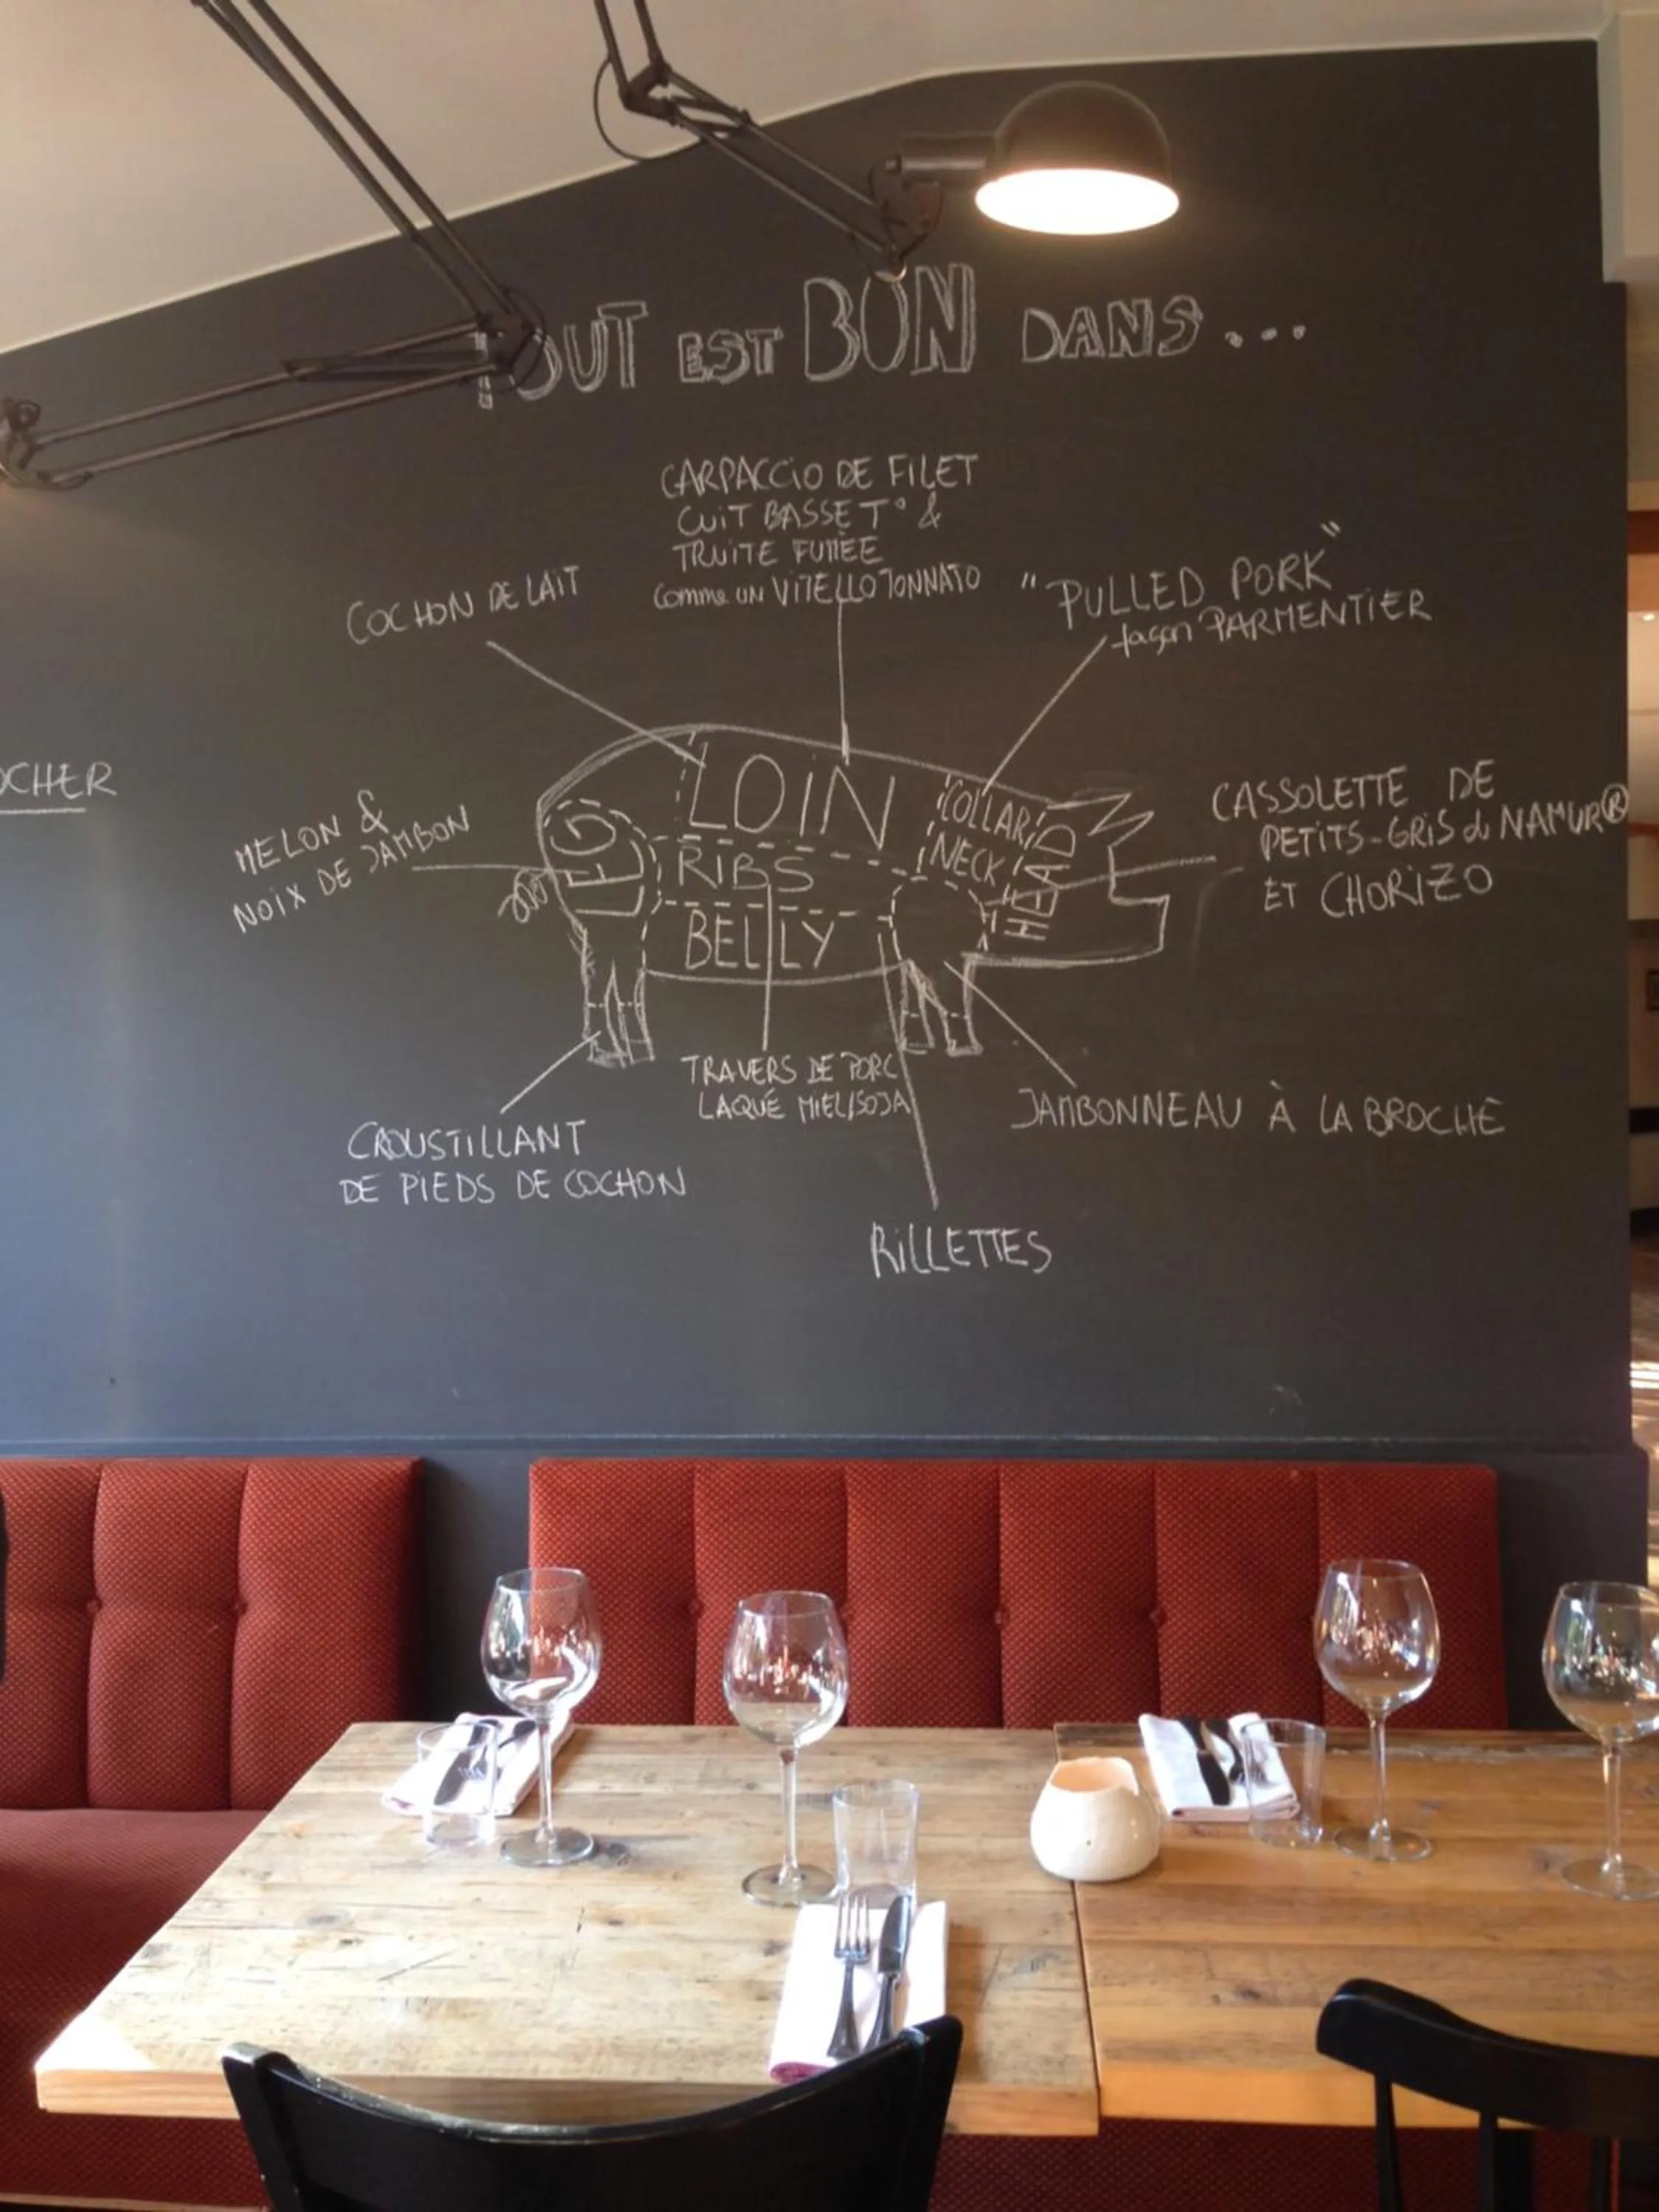 TOUT EST BON DANS...
CARPACCIO DE FILET
CUIT BASSE T° &
TRUITE FUMÉE
comme un VITELLO TONNATO
COCHON DE LAIT
"PULLED PORK"
façon PARMENTIER
OCHER
MELON &
NOIX DE JAMBON
LOIN
COLLAR
NECK
HEAD
RIBS
BELLY
CASSOLETTE DE
PETITS-GRIS de NAMUR®
ET CHORIZO
TRAVERS DE PORC
LAQUÉ MIEL/SOJA
JAMBONNEAU À LA BROCHE
CROUSTILLANT
DE PIEDS DE COCHON
RILLETTES